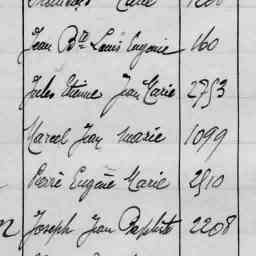 Jean Bte Louis Eugenie 160
Jules Etienne Jean Marie 2753
Marcel Jean marie 1099
Pierre Eugène Marie 2510
Joseph Jean Baptiste 2208